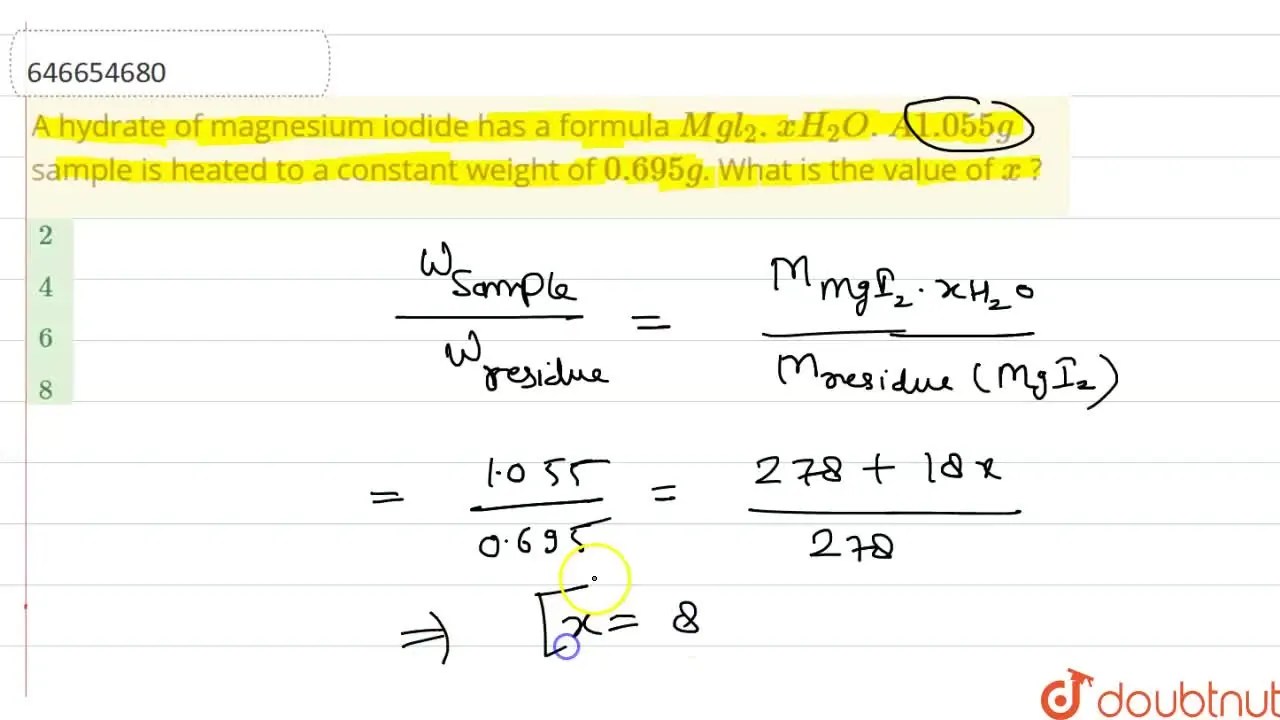 646654680
A hydrate of magnesium iodide has a formula MgI₂. xH₂O. A1.055g
sample is heated to a constant weight of 0.695g. What is the value of x ?
2
4
6
8
W Sample / W residue = M MgI₂ · xH₂O / M residue (MgI₂)
= 1.055 / 0.695 = 278 + 18x / 278
⇒ x = 8
doubtnut